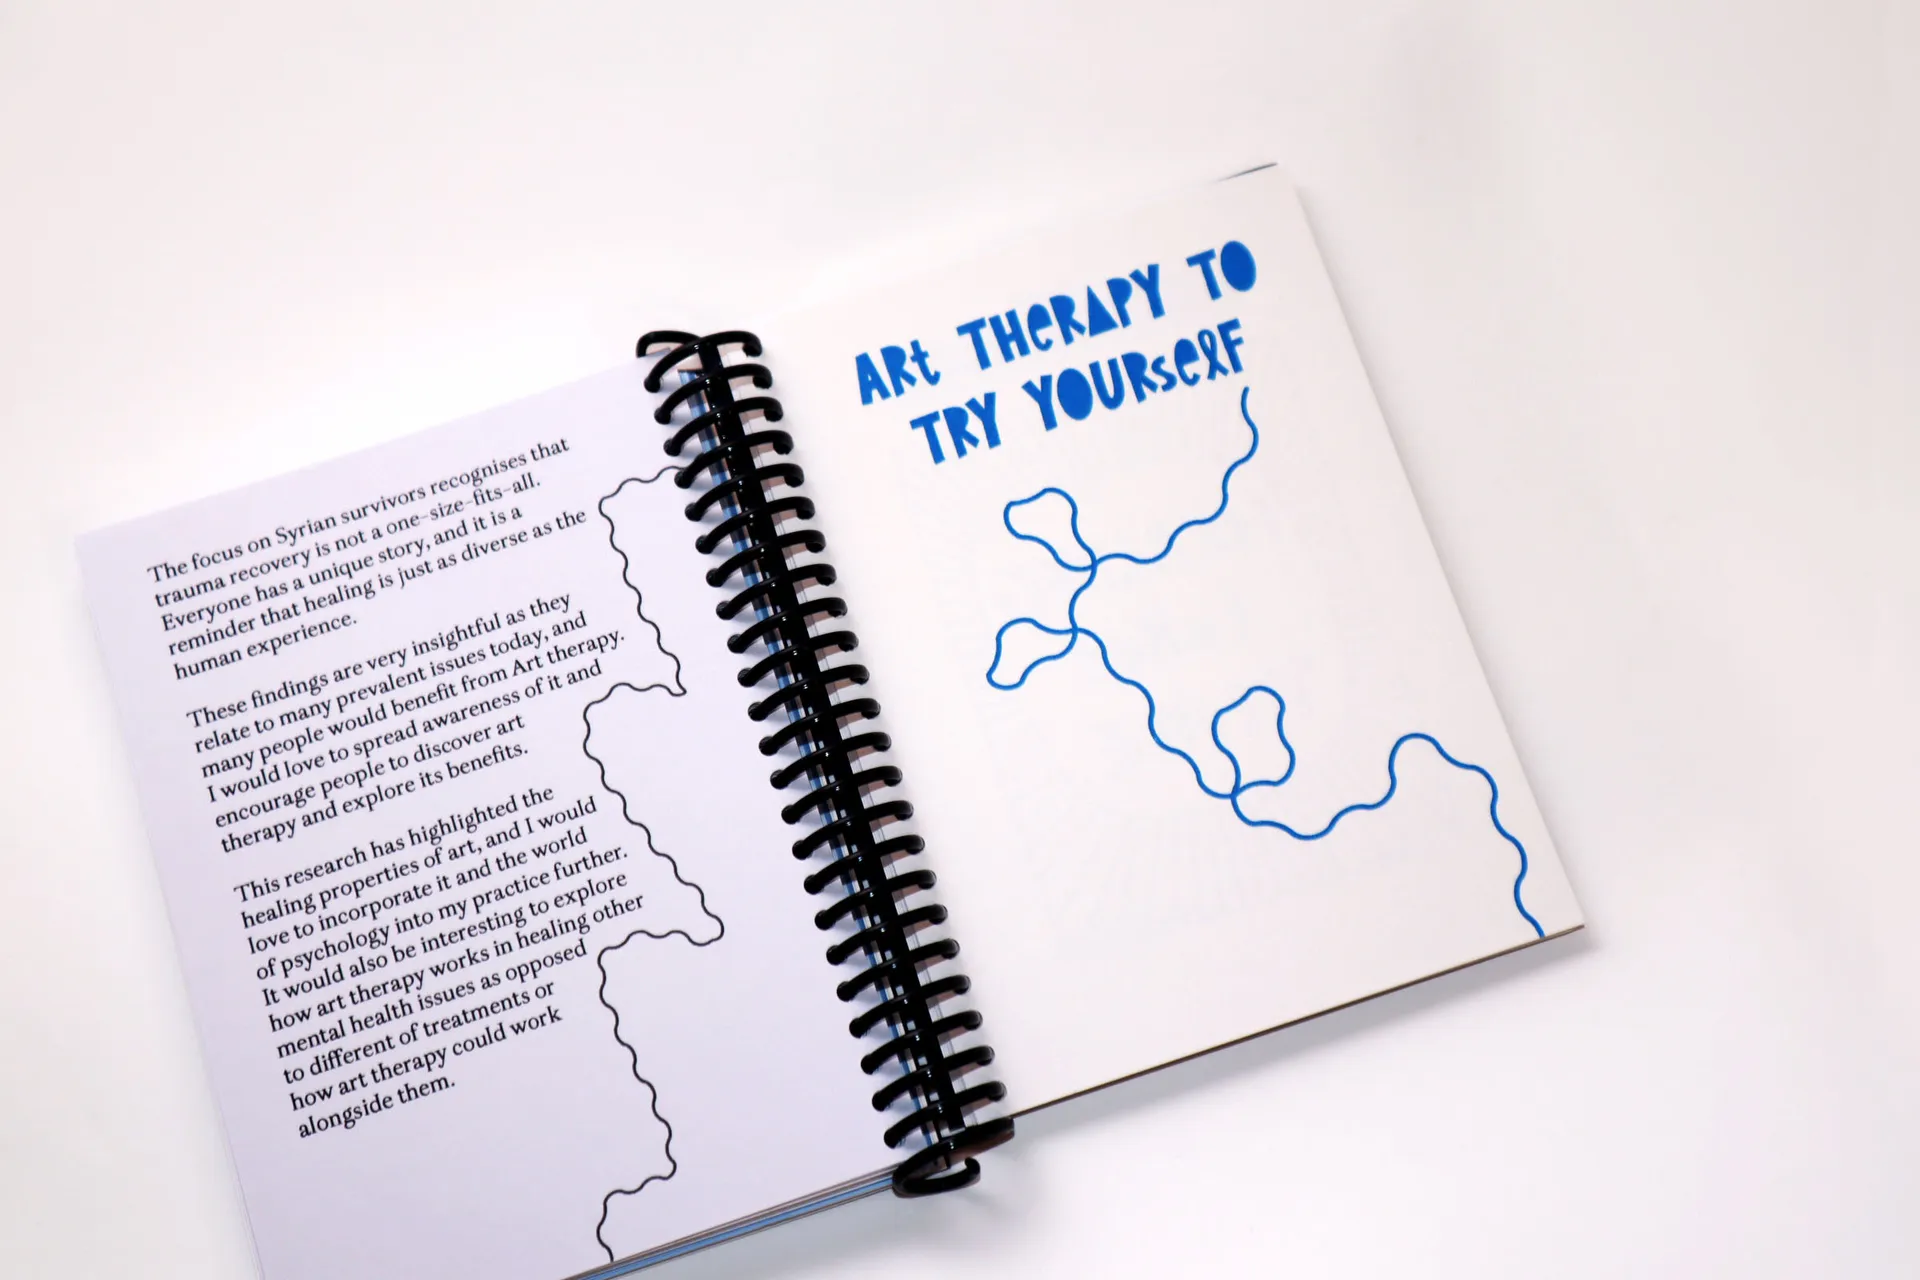 The focus on Syrian survivors recognises that
trauma recovery is not a one-size-fits-all.
Everyone has a unique story, and it is a
reminder that healing is just as diverse as the
human experience.
These findings are very insightful as they
relate to many prevalent issues today, and
many people would benefit from Art therapy.
I would love to spread awareness of it and
encourage people to discover art
therapy and explore its benefits.
This research has highlighted the
healing properties of art, and I would
love to incorporate it and the world
of psychology into my practice further.
It would also be interesting to explore
how art therapy works in healing other
mental health issues as opposed
to different of treatments or
how art therapy could work
alongside them.
ARt THeRAPY TO
TRY YOURselF